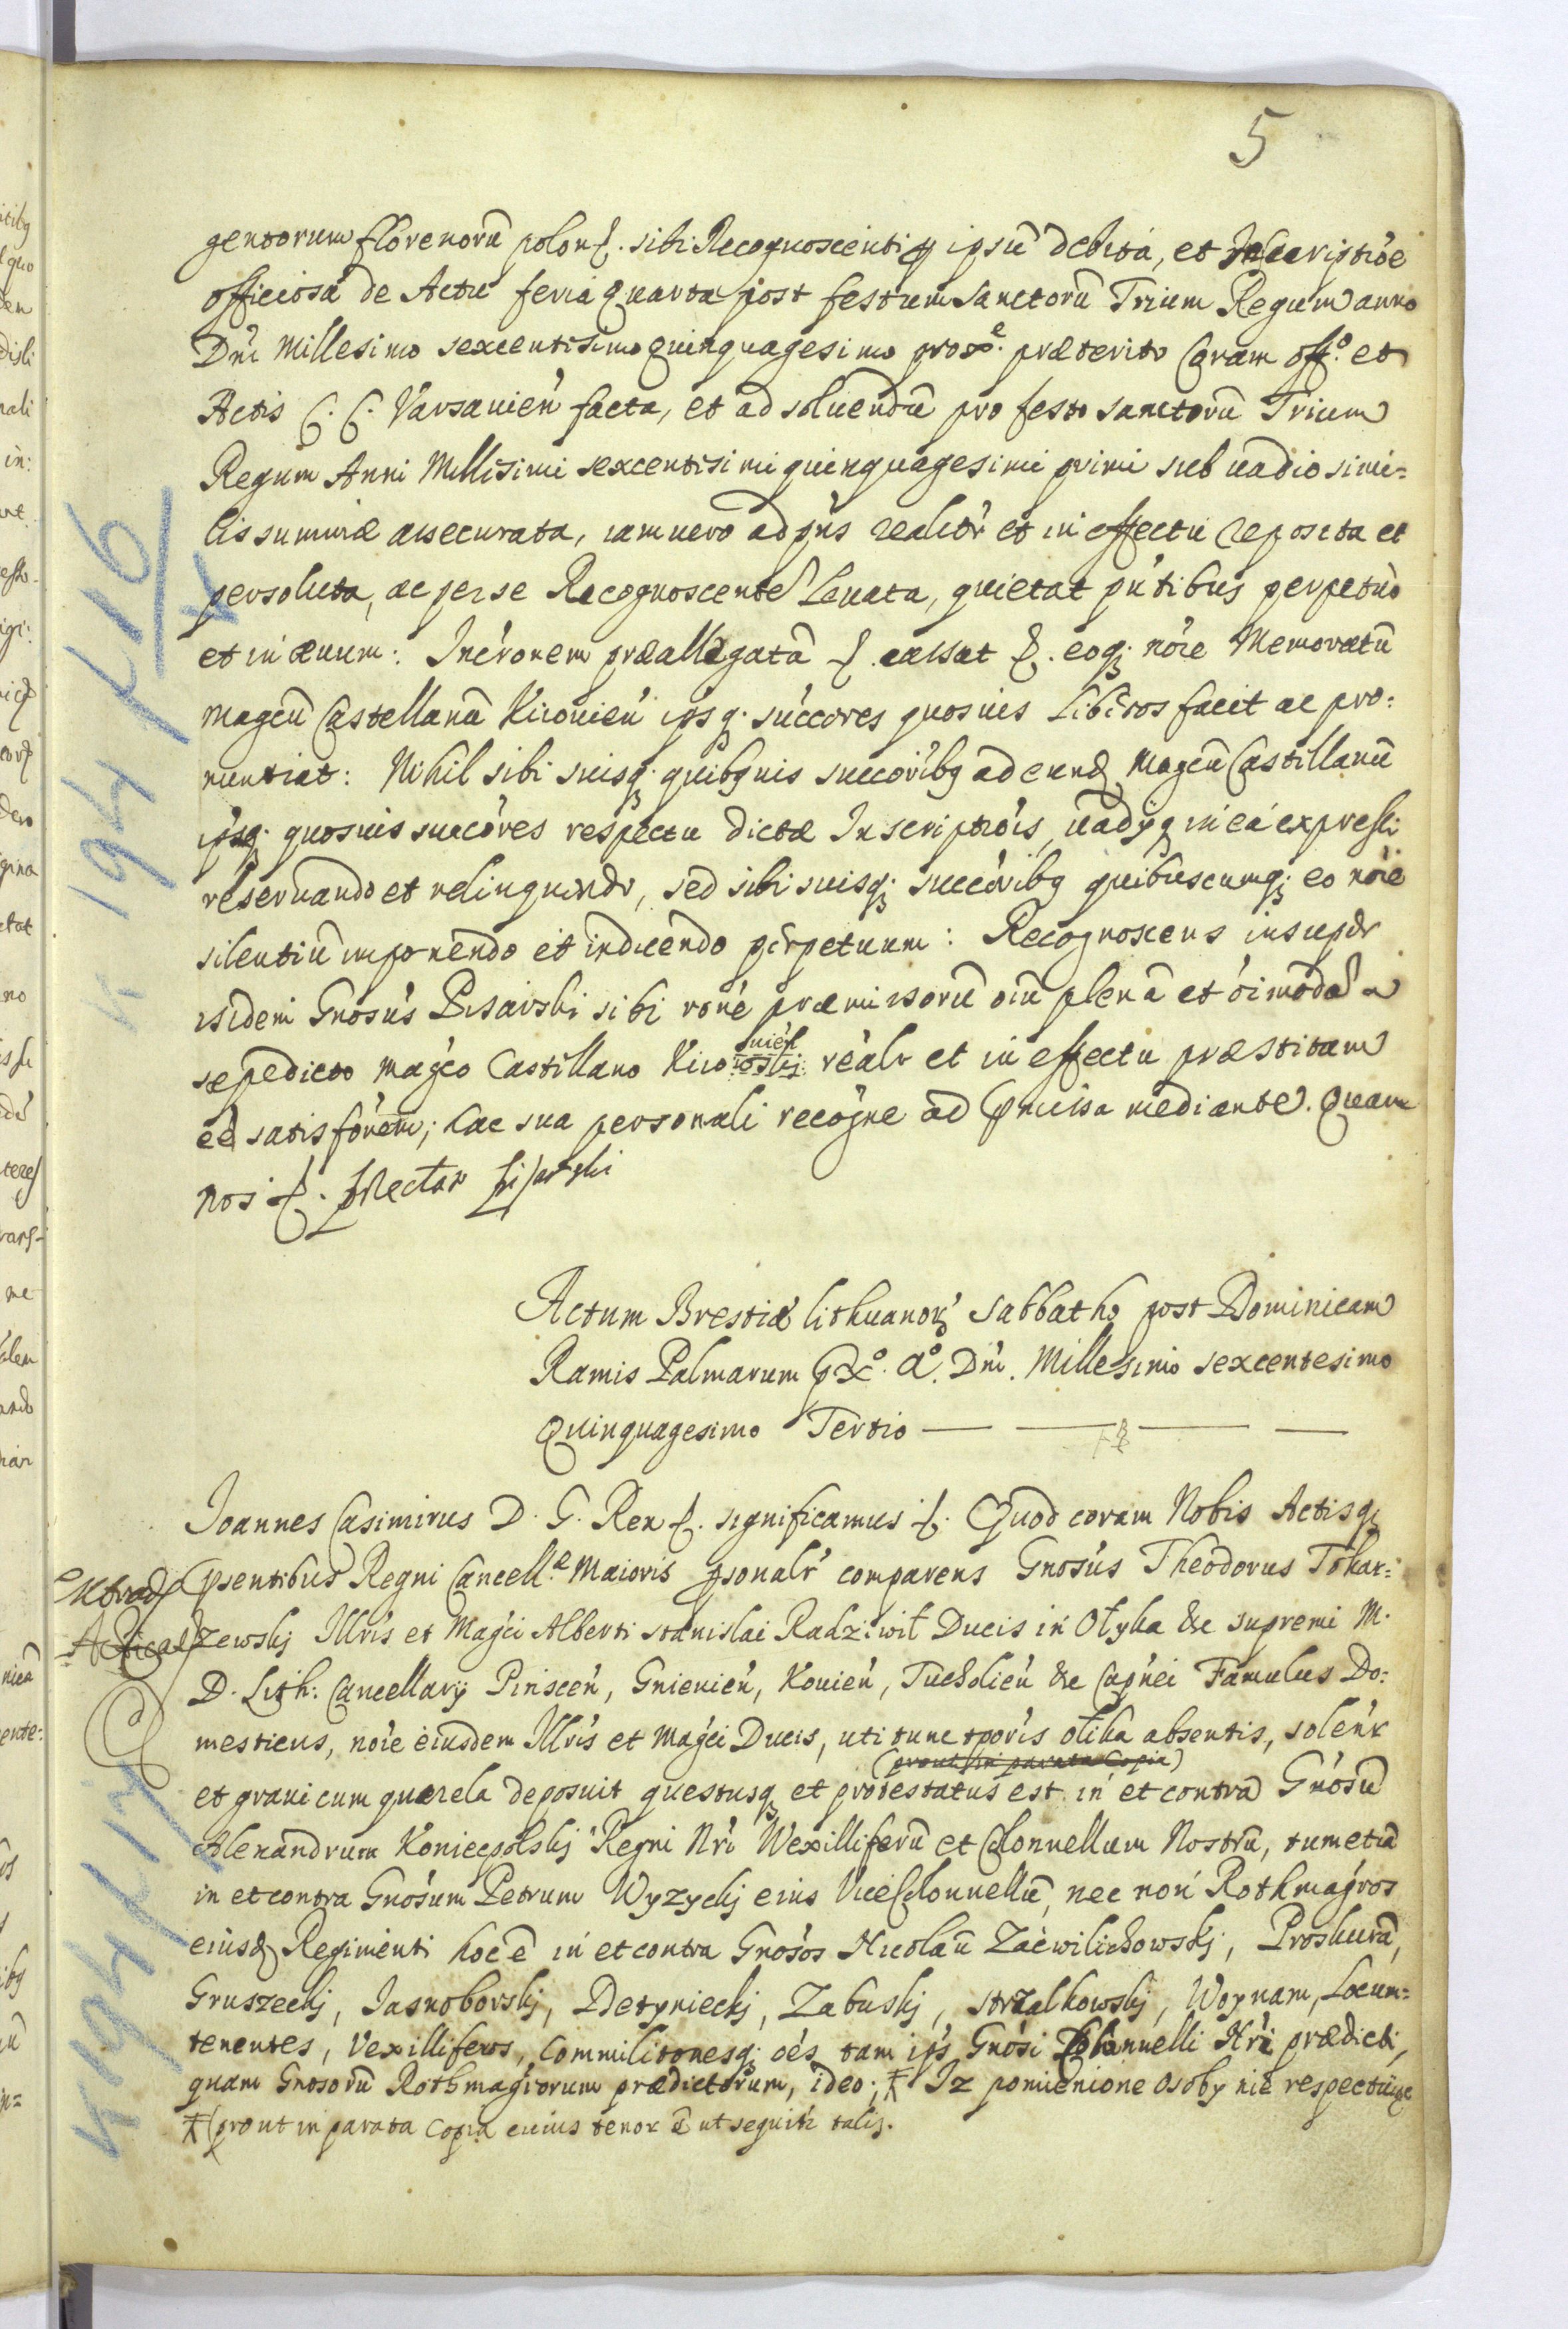 5
gentorum florenorū polon. sibi Recognoscenti ꝑ ipsū debita, et Inscriptiõe
officiosa de Actu feria Quarta post festum Sanctorū Trium Regum anno
Dni Millesimo sexcentisimo Quinquagesimo proxe. præterito Coram Offo. et
Actis C. C. Varsavien facta, et ad soluendū pro festo sanctorū Trium
Regum Anni Millisimi sexcentisimi quinquagesimi primi sub uadio simi=
lis summæ assecurata, iam uero ad pns realitr et in effectu reposita et
persoluta, ac per se Recognoscente Leuata, quietat pntibus perpetuò
et in æuum: Incronem præallegatā cassat eoqꝫ noie Memoratū
magcū Castellanū Kiiouien ipsqꝫ succores quosuis Liberos facit ac pro:
nuntiat: Nihil sibi suisqꝫ quibusuis succoribꝫ ad eund Magcū Castillanū
ipsqꝫ quosuis succores respectu dictæ Inscriptiois, uadyqꝫ in ea expressi
reseruando et relinquendo, sed sibi suisqꝫ succoribꝫ quibuscumqꝫ eo noie
silentiū imponendo et indicendo perpetuum: Recognoscens insuper
isidem Gnosus Pisarski sibi rone præmissorū oiū plenā et oimodā a
sæpedicto magco Castillano Kiiowskj uien realr et in effectu præstitam
eē satisfonem; hac sua personali recogne ad præmissa mediante. Quam
nos Hector Pisarski
Actum Brestiæ lithuanor Sabbatho post Dominicam
Ramis Palmarum px̄o. Ao. Dni. Millesimo sexcentesimo
Quinquagesimo Tertio
Joannes Casimirus D. G. Rex significamus Quod coram Nobis Actisqꝫ
Extrad psentibus Regni Cancell.æ Maioris psonalr comparens Gnosus Theodorus Tokar=
zewskj Illris et Magci Alberti stanislai Radziwił Ducis in Ołyka &c supremi M.
D. Lith: Cancellarÿ Pinscen, Gnieuien, Kouien, Tucholien &c Capnei Famulus Do:
mesticus, noie eiusdem Illris et magci Ducis, uti tunc tporis otiba absentis, solenr
(prout in parata Copia)
et graui cum quærela deposuit questusqꝫ et protestatus est in et contra Gnosū
Alexandrum Koniecpolskj Regni Nri Wexilliferū et Colonnellum Nostrū, tum etiā
in et contra Gnosum Petrum Wyzyckj eius ViceColonnellū, nec non Rothmagros
eiusd Regimenti hoc ē in et contra Gnosos Nicolaū Zacwilichowskj, Proskurā,
Gruszeckj, Jasnoborskj, Detynieckj, Zabuskj, strzałkowskj, Woynam, Locum=
tenentes, Vexilliferos, Commilitonesqꝫ oēs tam ips Gnosi Colonnelli Nri prædicti,
quam Gnosorū Rothmagrorum prædictorum, ideo; Iz pomienione Osoby nie respectuiąc
(prout in parata Copia cuius tenor ē ut sequitr talis.
K 194 K 16
K 194 K 17